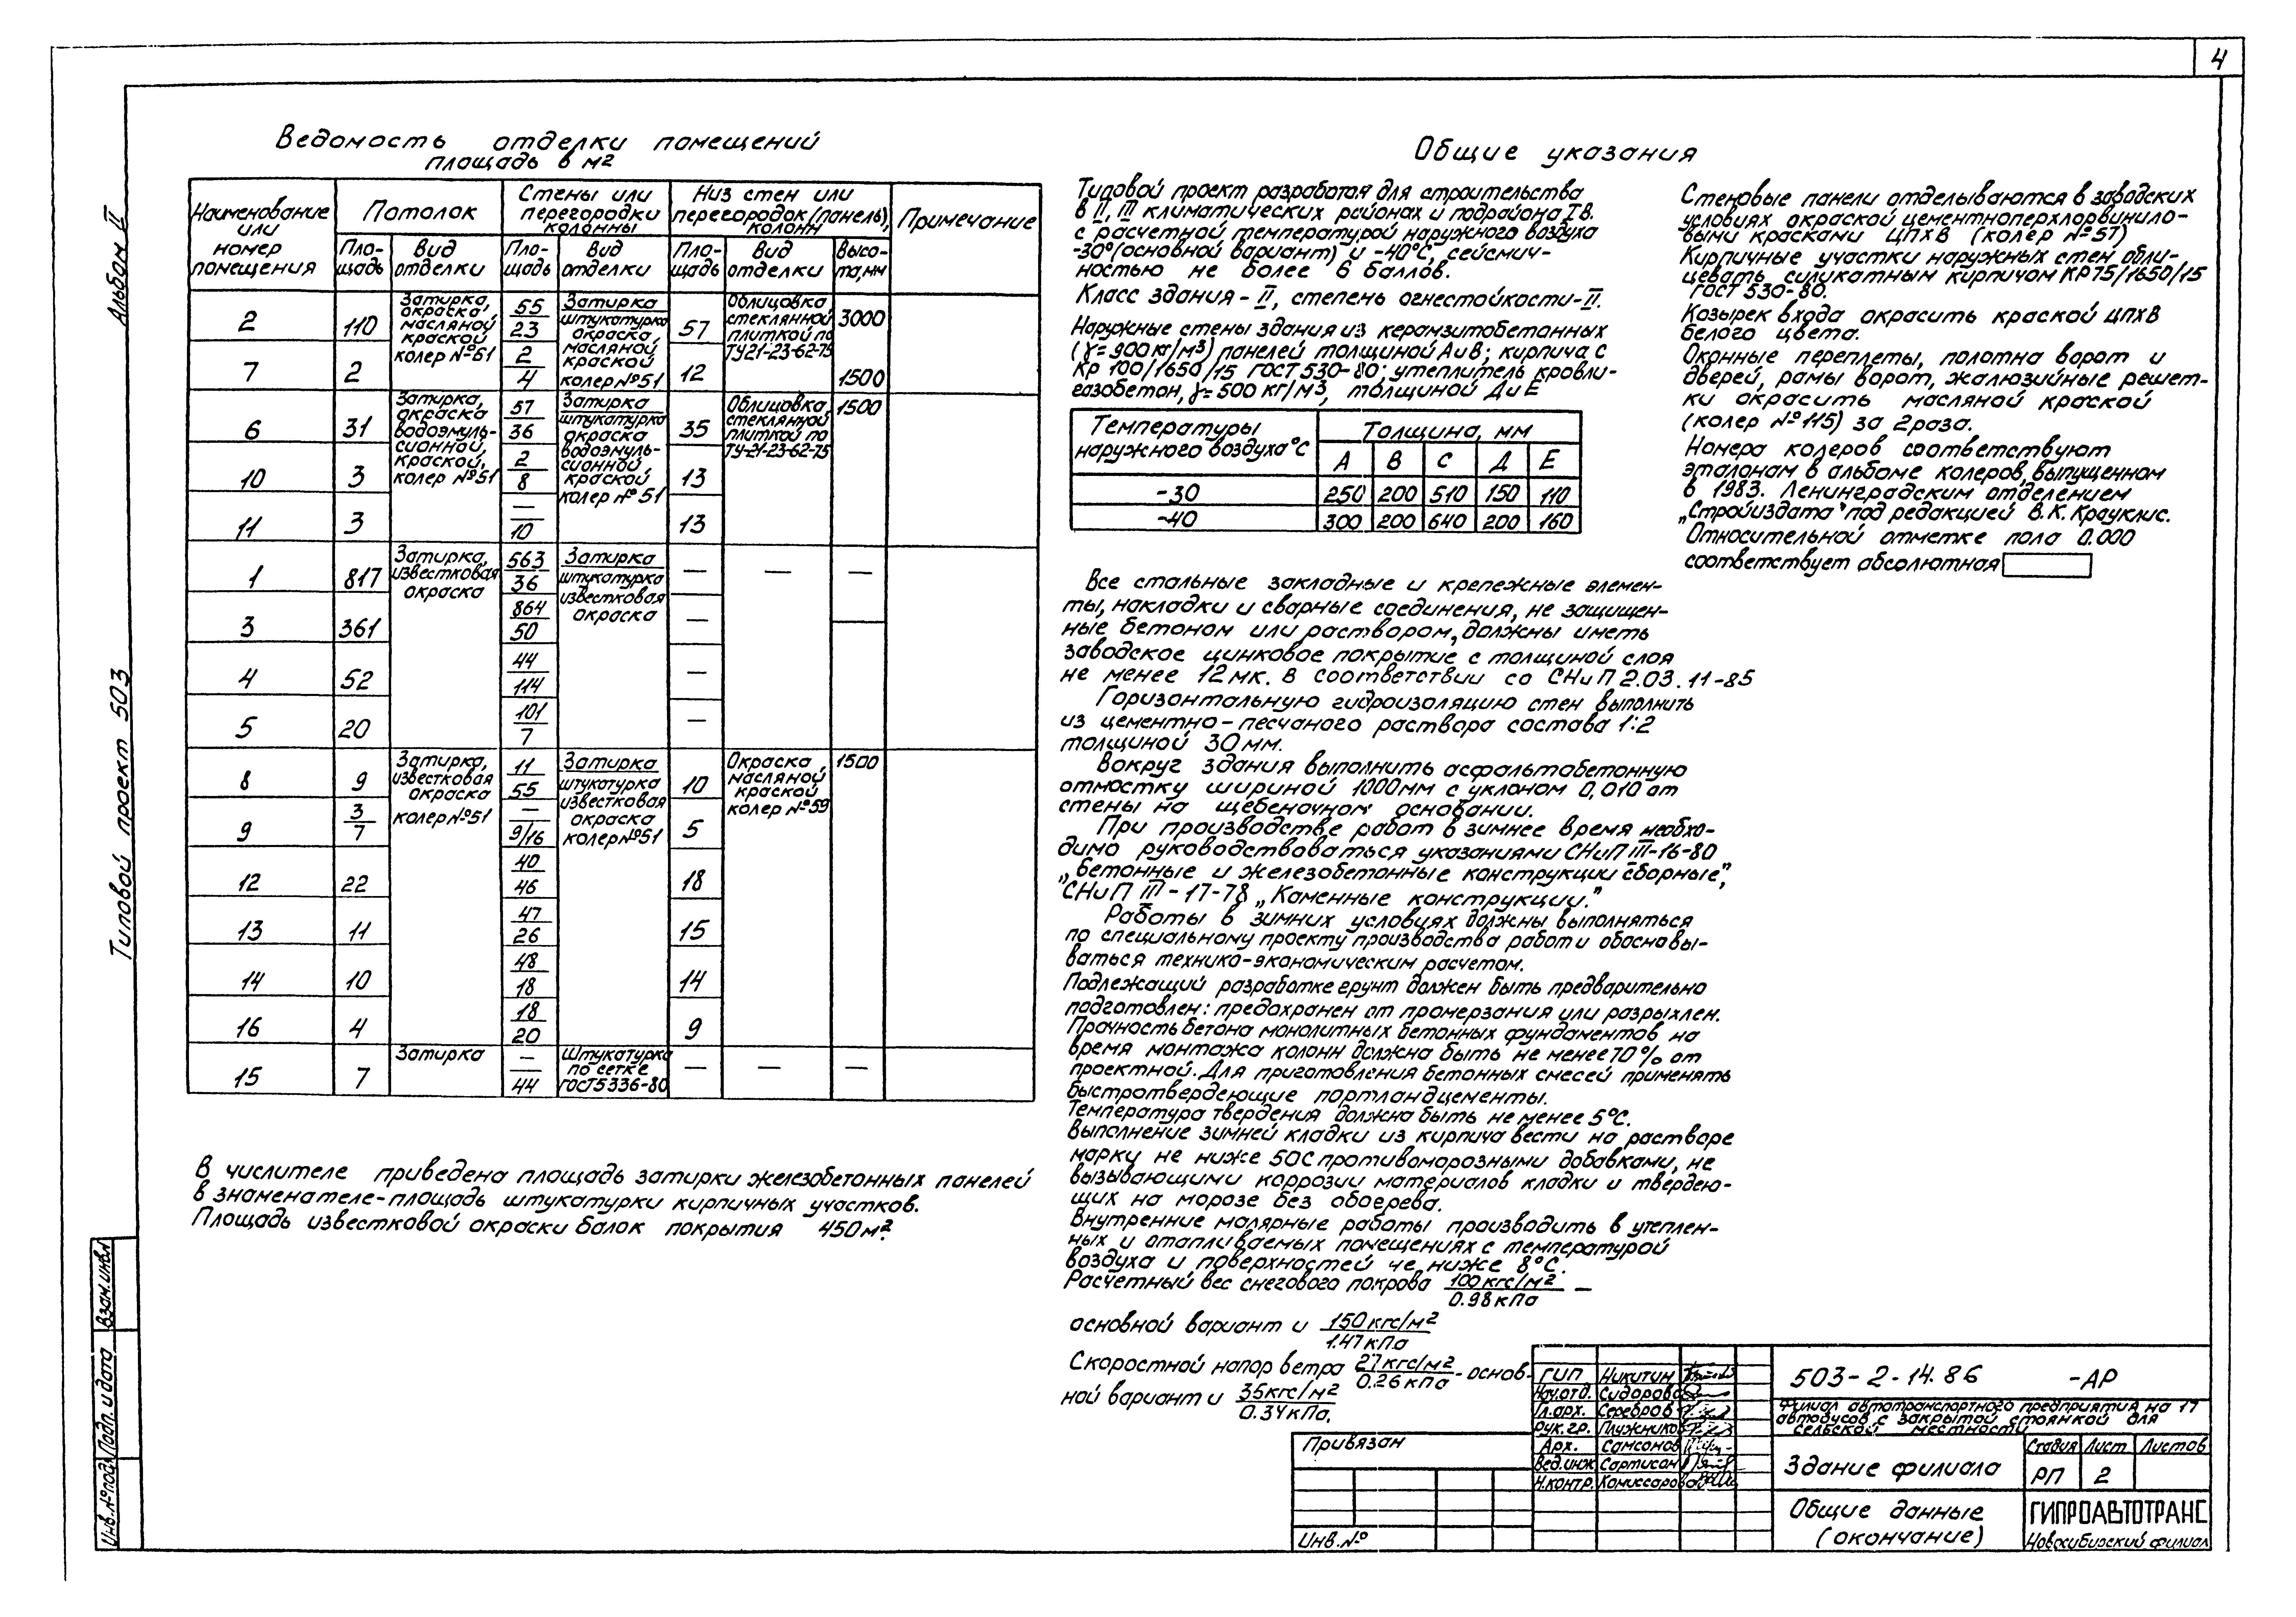 4
Альбом II
Типовой проект 503
Ведомость отделки помещений
площадь в м²
Наименование или номер помещения
Потолок
Стены или перегородки колонны
Низ стен или перегородок (панель), колонн
Примечание
Площадь
Вид отделки
Площадь
Вид отделки
Площадь
Вид отделки
Высота, мм
2 110 55/23 57 3000
7 2 2/4 12 1500
Затирка, окраска масляной краской колер №51
Затирка штукатурка окраска масляной краской колер №51
Облицовка стеклянной плиткой по ТУ21-23-62-75
6 31 57/36 35 1500
10 3 2/8 13
11 3 —/10 13
Затирка, окраска водоэмуль-сионной, краской, колер №51
Затирка штукатурка окраска водоэмуль-сионной краской колер №51
Облицовка стеклянной плиткой по ТУ-21-23-62-75
1 817 563/36 — — —
3 361 864/50 —
4 52 44/114 —
5 20 101/7 —
Затирка, известковая окраска
Затирка штукатурка известковая окраска
8 9 11/55 10 1500
9 3/7 —/9/16 5
12 22 40/46 18
13 11 47/26 15
14 10 48/18 14
16 4 18/20 9
Затирка, известковая окраска колер №51
Затирка штукатурка известковая окраска колер №51
Окраска масляной краской колер №59
15 7 Затирка —/44 Штукатурка по сетке ГОСТ5336-80 — — —
В числителе приведена площадь затирки железобетонных панелей
в знаменателе-площадь штукатурки кирпичных участков.
Площадь известковой окраски балок покрытия 450м².
Общие указания
Типовой проект разработан для строительства
в II, III климатических районах и подрайона IВ.
с расчетной температурой наружного воздуха
-30°(основной вариант) и -40°С, сейсмич-
ностью не более 6 баллов.
Класс здания-II, степень огнестойкости-II.
Наружные стены здания из керамзитобетонных
(γ=900кг/м³) панелей толщиной А и В; кирпича с
Кр 100/1650/15 ГОСТ 530-80; утеплитель кровли-
газобетон, γ=500 кг/м³, толщиной Д и Е
Температуры наружного воздуха °С
Толщина, мм
А В С Д Е
-30 250 200 510 150 110
-40 300 200 640 200 160
Все стальные закладные и крепежные элемен-
ты, накладки и сварные соединения, не защищен-
ные бетоном или раствором, должны иметь
заводское цинковое покрытие с толщиной слоя
не менее 12мк. в соответствии со СНиП 2.03.11-85
Горизонтальную гидроизоляцию стен выполнить
из цементно-песчаного раствора состава 1:2
толщиной 30мм.
Вокруг здания выполнить асфальтобетонную
отмостку шириной 1000мм с уклоном 0,010 от
стены на щебеночном основании.
При производстве работ в зимнее время необхо-
димо руководствоваться указаниями СНиП III-16-80
„Бетонные и железобетонные конструкции сборные”,
СНиП III-17-78 „Каменные конструкции.”
Работы в зимних условиях должны выполняться
по специальному проекту производства работ и обосновы-
ваться технико-экономическим расчетом.
Подлежащий разработке грунт должен быть предварительно
подготовлен: предохранен от промерзания или разрыхлен.
Прочность бетона монолитных бетонных фундаментов на
время монтажа колонн должна быть не менее 70% от
проектной. Для приготовления бетонных смесей применять
быстротвердеющие портландцементы.
Температура твердения должна быть не менее 5°С.
Выполнение зимней кладки из кирпича вести на растворе
марку не ниже 50С противоморозными добавками, не
вызывающими коррозии материалов кладки и твердею-
щих на морозе без обогрева.
Внутренние малярные работы производить в утеплен-
ных и отапливаемых помещениях с температурой
воздуха и поверхностей не ниже 8°С.
Расчетный вес снегового покрова 100кгс/м²/0.98кПа —
основной вариант и 150кгс/м²/1.47кПа
Скоростной напор ветра 27кгс/м²/0.26кПа - основ-
ной вариант и 35кгс/м²/0.34кПа.
Стеновые панели отделываются в заводских
условиях окраской цементноперхлорвинило-
выми красками ЦПХВ (колер №57)
Кирпичные участки наружных стен обли-
цевать силикатным кирпичом КР75/1650/15
ГОСТ 530-80.
Козырек входа окрасить краской ЦПХВ
белого цвета.
Оконные переплеты, полотна ворот и
дверей, рамы ворот, жалюзийные решет-
ки окрасить масляной краской
(колер №115) за 2раза.
Номера колеров соответствуют
эталонам в альбоме колеров, выпущенном
в 1983. Ленинградским отделением
„Стройиздата” под редакцией В.К. Крауклис.
Относительной отметке пола 0.000
соответствует абсолютная
Взам.инв№
Подп. и дата
Инв.№подл
Привязан
Инв.№
ГИП Никитин
Нач.отд. Сидоров
Гл.арх. Серебров
Рук.гр. Плужников
Арх. Самсонов
Вед.инж Сартисон
Н.контр. Комиссарова
503-2-14.86 -АР
Филиал автотранспортного предприятия на 17
автобусов с закрытой стоянкой для
сельской местности
Здание филиала
Стадия Лист Листов
РП 2
Общие данные
(окончание)
ГИПРОАВТОТРАНС
Новосибирский филиал